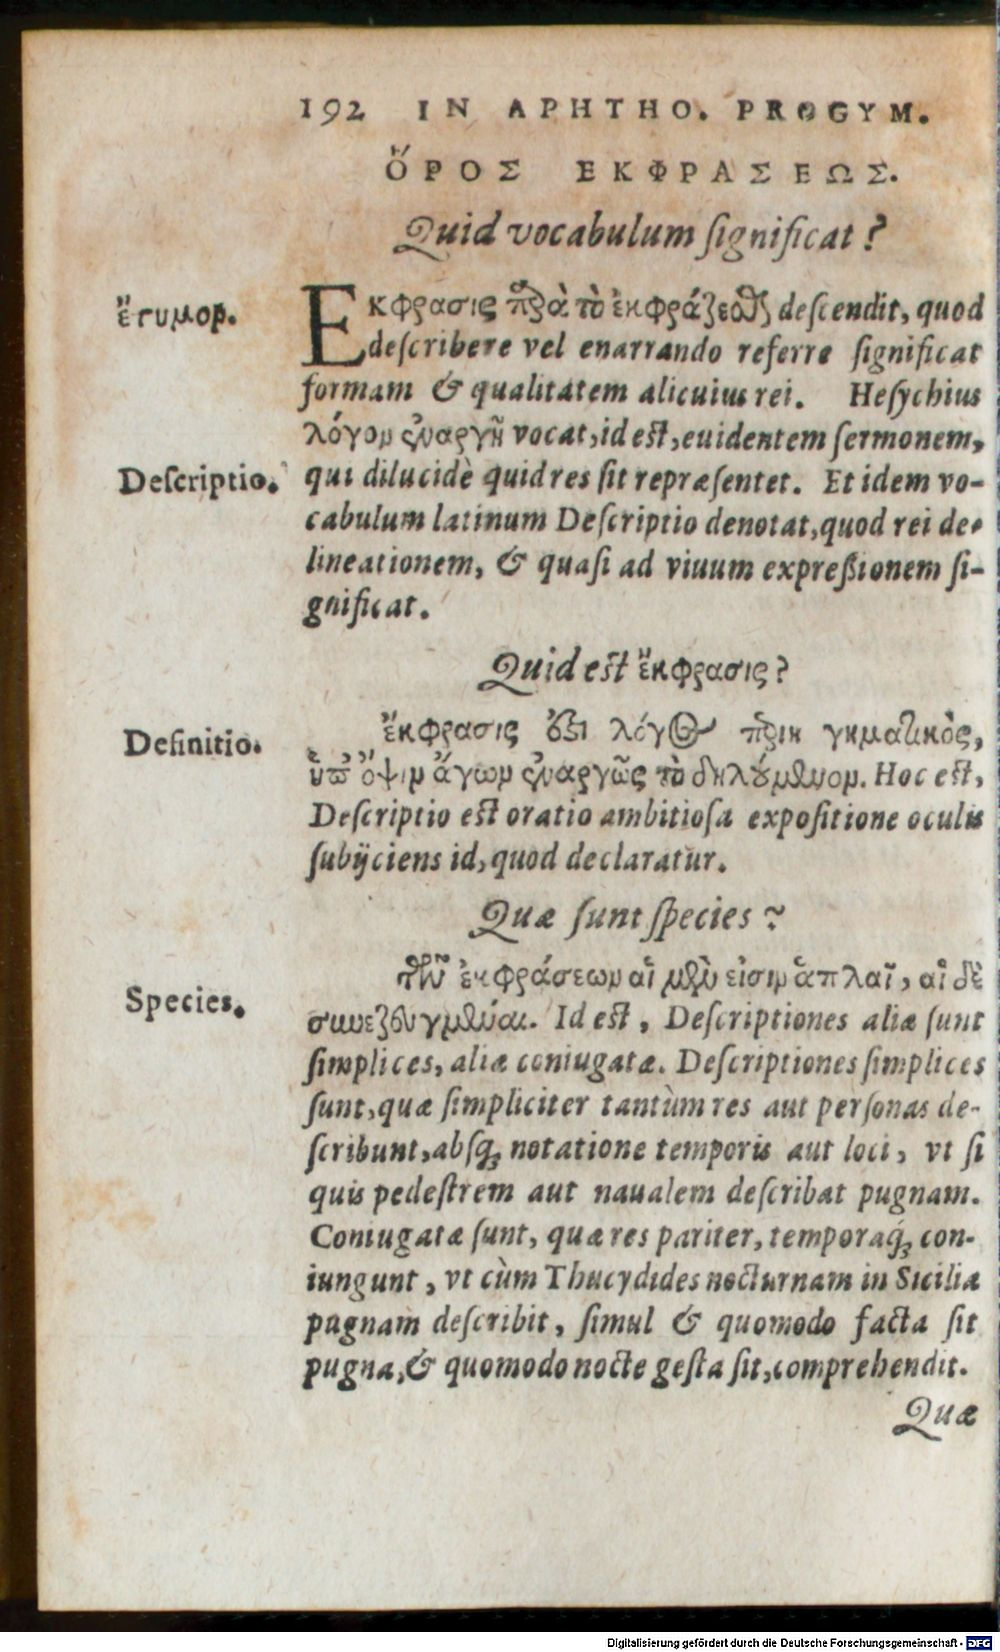 192 IN APHTHO. PROGYM.
ὍΡΟΣ ΕΚΦΡΑΣΕΩΣ.
Quid vocabulum ſignificat?
ἔτυμον.
Εκφρασις παρὰ τὸ ἐκφράζεσθαι deſcendit, quod
deſcribere vel enarrando referre ſignificat
formam & qualitatem alicuius rei. Heſychius
λόγον ἐναργῆ vocat, id eſt, euidentem ſermonem,
Deſcriptio.
qui dilucidè quid res ſit repræſentet. Et idem vo-
cabulum latinum Deſcriptio denotat, quod rei de-
lineationem, & quaſi ad viuum expreßionem ſi-
gnificat.
Quid eſt ἔκφρασις?
Definitio.
ἔκφρασις ἐστι λόγος περιηγηματικὸς,
ὑπ᾽ ὄψιν ἄγων ἐναργῶς τὸ δηλούμενον. Hoc eſt,
Deſcriptio eſt oratio ambitioſa expoſitione oculis
ſubijciens id, quod declaratur.
Quæ ſunt ſpecies?
Species.
τῶν ἐκφράσεων αἱ μὲν εἰσιν ἁπλαῖ, αἱ δὲ
συνεζευγμέναι. Id eſt, Deſcriptiones aliæ ſunt
ſimplices, aliæ coniugatæ. Deſcriptiones ſimplices
ſunt, quæ ſimpliciter tantùm res aut perſonas de-
ſcribunt, abſq; notatione temporis aut loci, vt ſi
quis pedeſtrem aut naualem deſcribat pugnam.
Coniugatæ ſunt, quæ res pariter, temporaq́; con-
iungunt, vt cùm Thucydides nocturnam in Sicilia
pugnam deſcribit, ſimul & quomodo facta ſit
pugna, & quomodo nocte geſta ſit, comprehendit.
Quæ
Digitalisierung gefördert durch die Deutsche Forschungsgemeinschaft - DFG